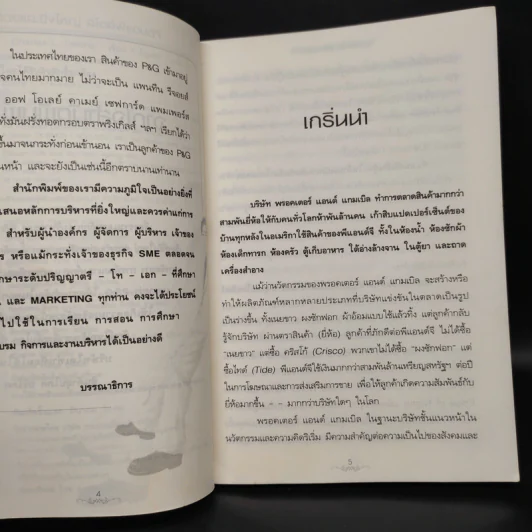 ในประเทศไทยของเรา สินค้าของ P&G เข้ามาอยู่
จคนไทยมากมาย ไม่ว่าจะเป็น แพนทีน รีจอยส์
ออฟ โอเลย์ คาเมย์ เซฟการ์ด แพมเพอร์ส
ทั่งมันฝรั่งทอดกรอบตราพริงเกิลส์ ฯลฯ เรียกได้ว่า
ขึ้นมาจนกระทั่งก่อนเข้านอน เราเป็นลูกค้าของ P&G
นหน้า และจะยังเป็นเช่นนี้อีกตราบนานเท่านาน
สำนักพิมพ์ของเรามีความภูมิใจเป็นอย่างยิ่งที่
เสนอหลักการบริหารที่ยิ่งใหญ่และควรค่าแก่การ
สำหรับผู้นำองค์กร ผู้จัดการ ผู้บริหาร เจ้าของ
ร หรือแม้กระทั่งเจ้าของธุรกิจ SME ตลอดจน
กษาระดับปริญญาตรี - โท - เอก - ที่ศึกษา
และ MARKETING ทุกท่าน คงจะได้ประโยชน์
ไปใช้ในการเรียน การสอน การศึกษา
บรม กิจการและงานบริหารได้เป็นอย่างดี
บรรณาธิการ
4
เกริ่นนำ
บริษัท พรอคเตอร์ แอนด์ แกมเบิล ทำการตลาดสินค้ามากกว่า
สามพันยี่ห้อให้กับคนทั่วโลกห้าพันล้านคน เก้าสิบแปดเปอร์เซ็นต์ของ
บ้านทุกหลังในอเมริกาใช้สินค้าของพีแอนด์จี ทั้งในห้องน้ำ ห้องซักผ้า
ห้องเด็กทารก ห้องครัว ตู้เก็บอาหาร ใต้อ่างล้างจาน ในตู้ยา และถาด
เครื่องสำอาง
แม้ว่านวัตกรรมของพรอคเตอร์ แอนด์ แกมเบิล จะสร้างหรือ
ทำให้ผลิตภัณฑ์หลากหลายประเภทที่บริษัทแข่งขันในตลาดเป็นรูป
เป็นร่างขึ้น ทั้งเนยขาว ผงซักฟอก ผ้าอ้อมแบบใช้แล้วทิ้ง แต่ลูกค้ากลับ
รู้จักบริษัท ผ่านตราสินค้า (ยี่ห้อ) ลูกค้าที่ภักดีต่อพีแอนด์จี ไม่ได้ซื้อ
"เนยขาว" แต่ซื้อ คริสโก้ (Crisco) พวกเขาไม่ได้ซื้อ "ผงซักฟอก" แต่
ซื้อไทด์ (Tide) พีแอนด์จีใช้เงินมากกว่าสามพันล้านเหรียญสหรัฐฯ ต่อปี
ในการโฆษณาและการส่งเสริมการขาย เพื่อให้ลูกค้าเกิดความสัมพันธ์กับ
ยี่ห้อมากขึ้น - - มากกว่าบริษัทใดๆ ในโลก
พรอคเตอร์ แอนด์ แกมเบิล ในฐานะบริษัทชั้นแนวหน้าใน
นวัตกรรมและความคิดริเริ่ม มีความสำคัญต่อความเป็นไปของสังคมและ
5